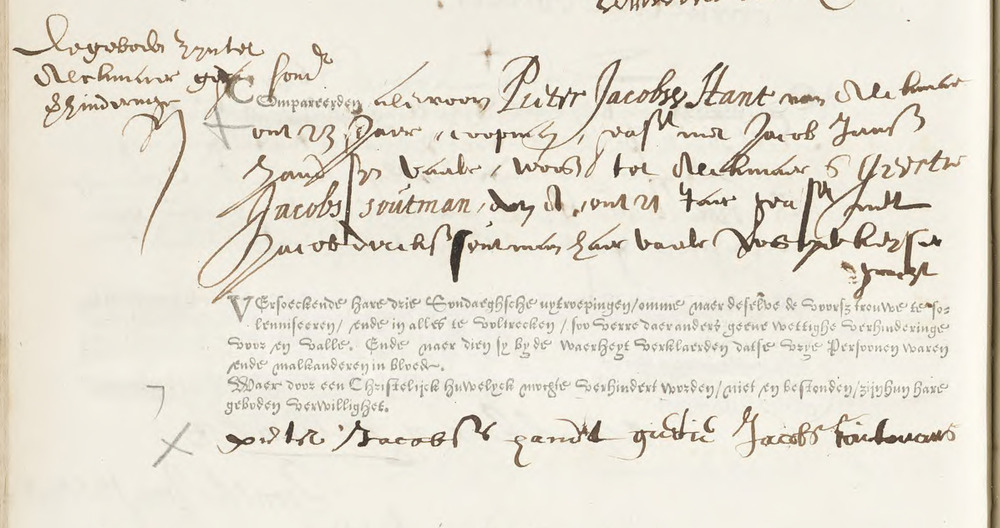 de geboden zijn tot
Alckmaer gegaen sond
verhinderinge
Compareerden als vooren Pieter Jacobsz Hant van Alckmaer
out 23 Jaer, geass met Jacob Jansz
Hant zijn vader, woon tot Alckmaer & Grietie
Jacobs soutman, van A, out 21 Jare geass met
Jacob dircksz soutman haer vader Wos opde keyser
graft
VErsoeckende hare drie Sondaeghsche uytroepingen / omme naer deselve de voorsz trouwe te so-
lenniseeren / ende in alles te voltrecken / soo verre daer anders geene wettighe verhinderinge
voor en valle. Ende naer dien sy by de waerheyt verklaerden datse vrye Persoonen waren
ende malkanderen in bloede.
Waer door een Christelijck huwelyck mochte verhindert worden / niet en bestonden / zijn hun hare
geboden verwillighet.
pieter Jacobsz handt grietie Jacobs soutmans